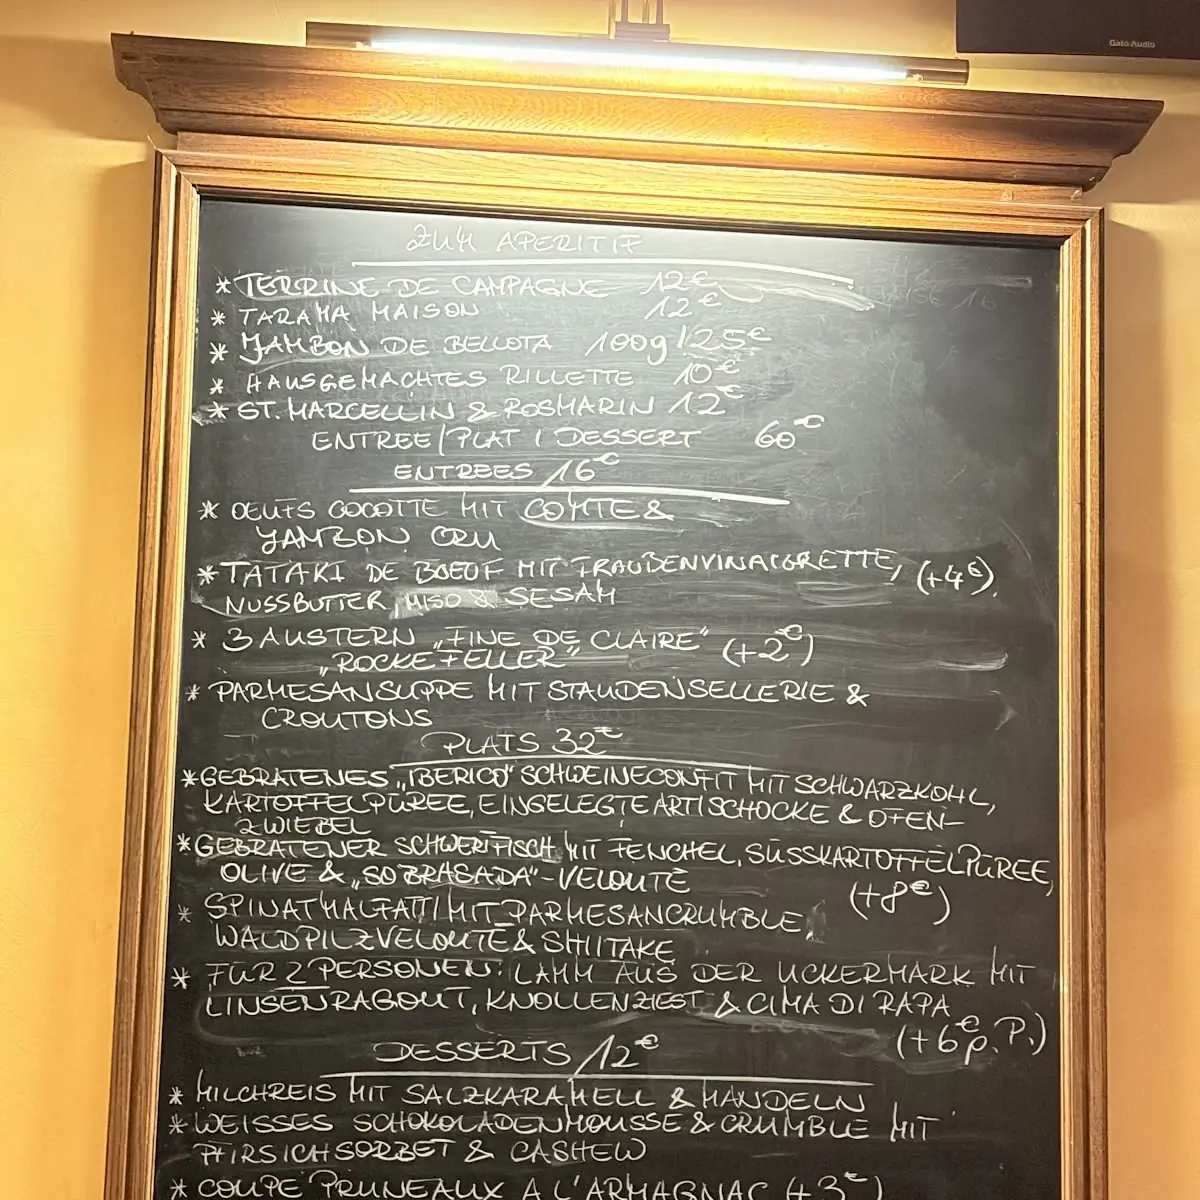 Galo Audio
ZUM APERITIF
* TERRINE DE CAMPAGNE 12€
* TARAMA MAISON 12€
* JAMBON DE BELLOTA 100g/25€
* HAUSGEMACHTES RILLETTE 10€
* ST. MARCELLIN & ROSMARIN 12€
ENTREE/PLAT/DESSERT 60€
ENTREES 16€
* OEUFS COCOTTE MIT COMTE &
JAMBON CRU
* TATAKI DE BOEUF MIT TRAUBENVINAIGRETTE, (+4€).
NUSSBUTTER, MISO & SESAM
* 3 AUSTERN „FINE DE CLAIRE" (+2€)
„ROCKEFELLER"
* PARMESANSUPPE MIT STAUDENSELLERIE &
CROUTONS
PLATS 32€
* GEBRATENES „IBERICO" SCHWEINECONFIT MIT SCHWARZKOHL,
KARTOFFELPÜREE, EINGELEGTE ARTISCHOCKE & OFEN-
ZWIEBEL
* GEBRATENER SCHWERTFISCH MIT FENCHEL, SÜSSKARTOFFELPÜREE,
OLIVE & „SOBRASADA"-VELOUTÉ (+8€)
* SPINATMALFATTI MIT PARMESANCRUMBLE,
WALDPILZVELOUTÉ & SHIITAKE
* FÜR 2 PERSONEN: LAMM AUS DER UCKERMARK MIT
LINSENRAGOUT, KNOLLENZIEST & CIMA DI RAPA
(+6€ p. P.)
DESSERTS 12€
* MILCHREIS MIT SALZKARAMELL & MANDELN
* WEISSES SCHOKOLADENMOUSSE & CRUMBLE MIT
PFIRSICHSORBET & CASHEW
* COUPE PRUNEAUX A L'ARMAGNAC (+3€)